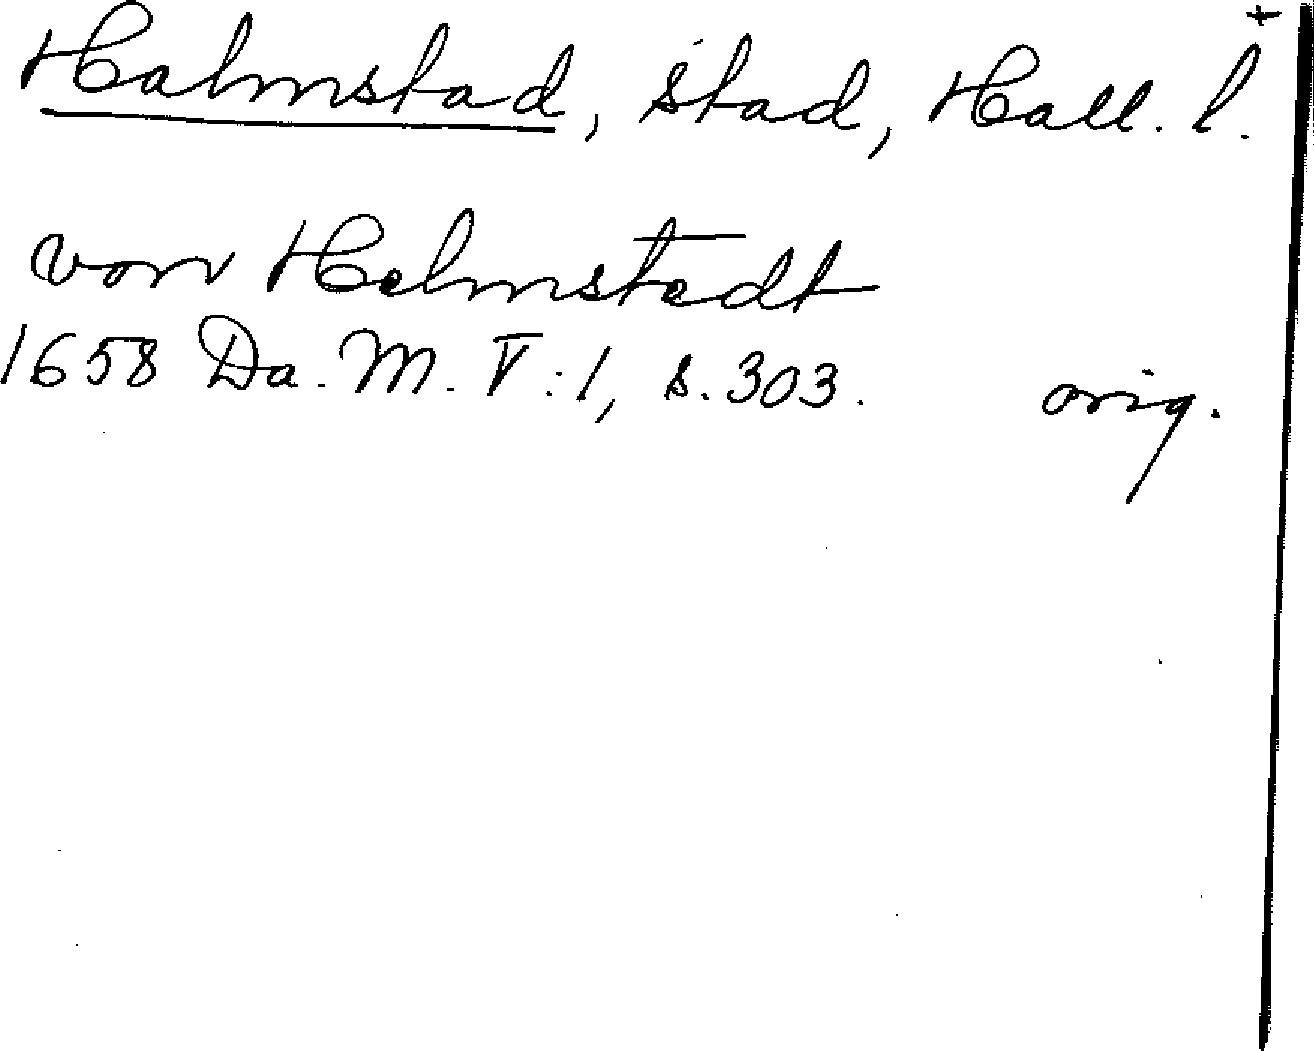 Halmstad, stad, Hall. l. +
von Helmstedt
1658 Da. M. V:1, s. 303. orig.